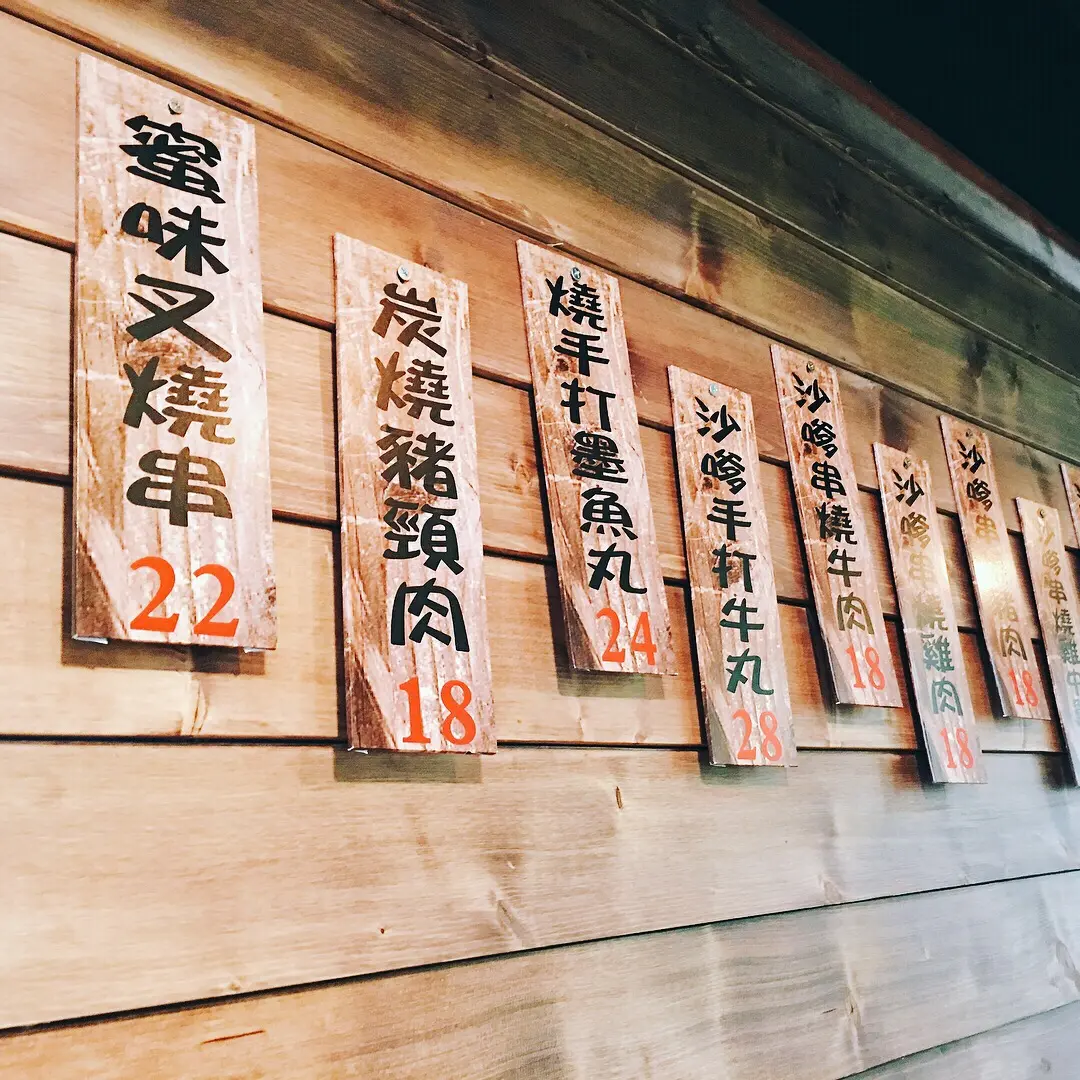 蜜味叉燒串
22
炭燒豬頸肉
18
燒手打墨魚丸
24
沙嗲手打牛丸
28
沙嗲串燒牛肉
18
沙嗲串燒雞肉
18
沙嗲串燒豬肉
18
沙嗲串燒雞中